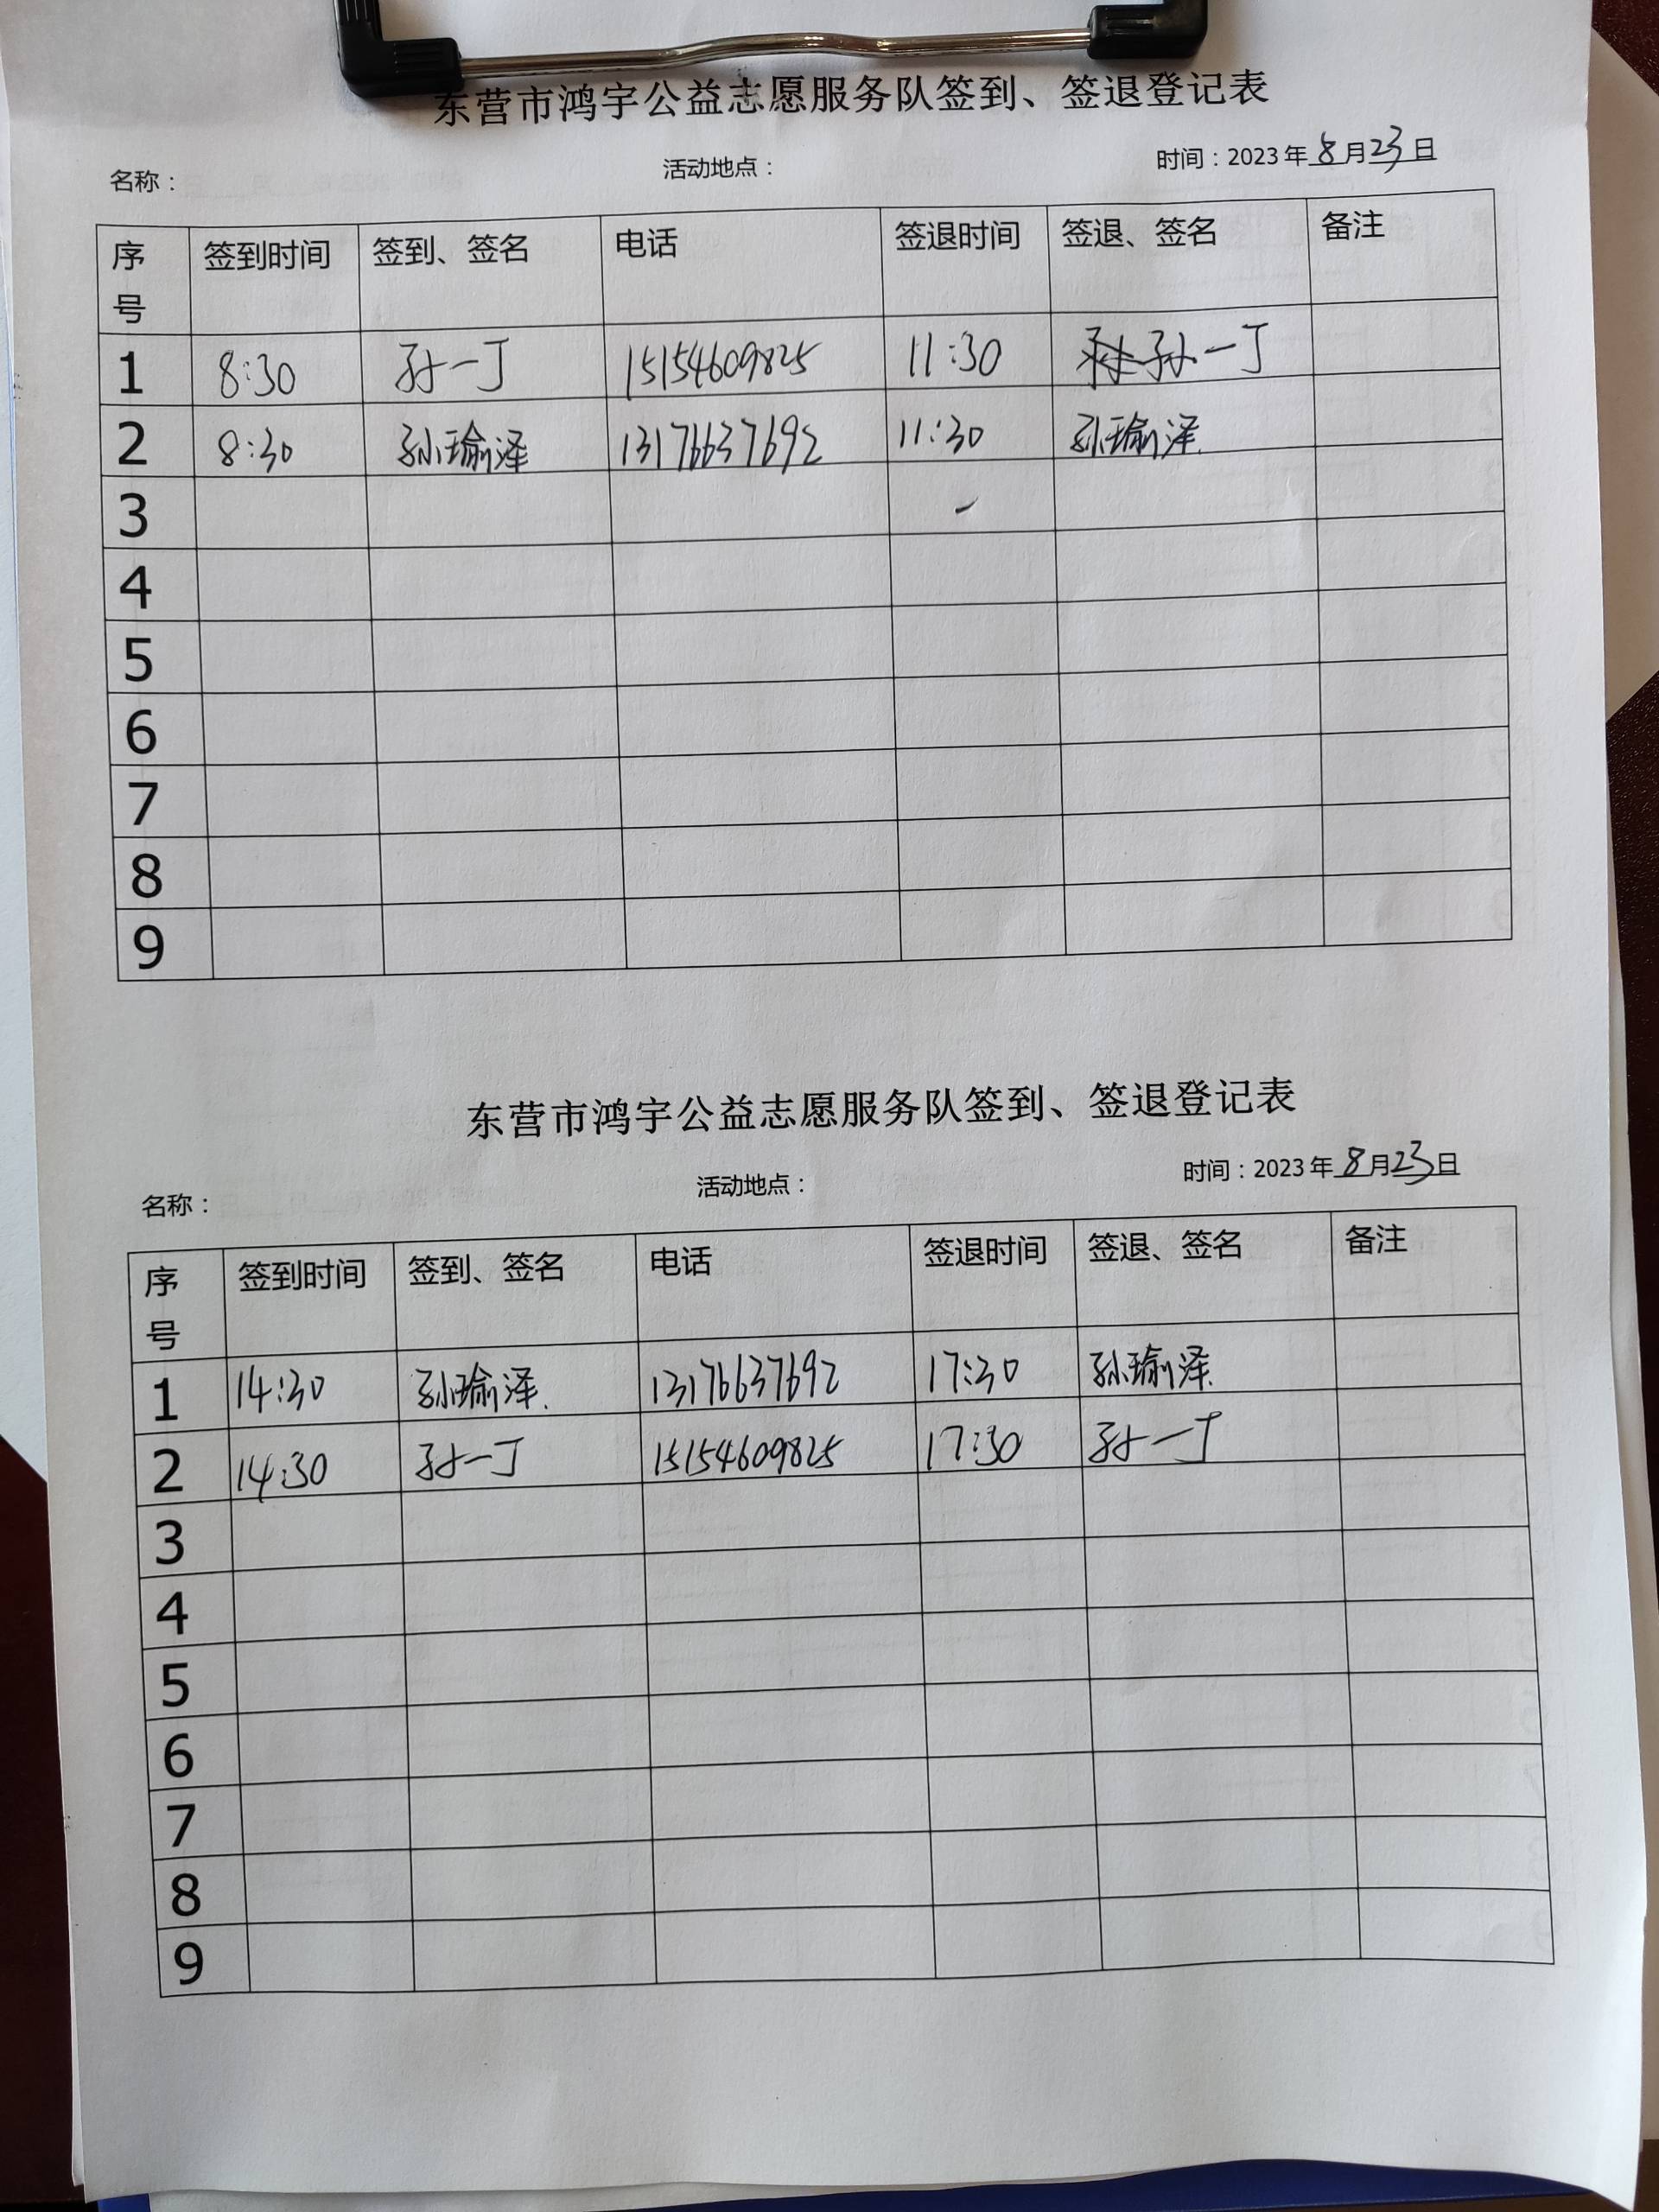 东营市鸿宇公益志愿服务队签到、签退登记表
名称： 活动地点： 时间：2023年8月23日
序号 签到时间 签到、签名 电话 签退时间 签退、签名 备注
1 8:30 孙一丁 15154609825 11:30 孙一丁
2 8:30 孙瑜泽 13176637692 11:30 孙瑜泽.
3
4
5
6
7
8
9
东营市鸿宇公益志愿服务队签到、签退登记表
名称： 活动地点： 时间：2023年8月23日
序号 签到时间 签到、签名 电话 签退时间 签退、签名 备注
1 14:30 孙瑜泽. 13176637692 17:30 孙瑜泽.
2 14:30 孙一丁 15154609825 17:30 孙一丁
3
4
5
6
7
8
9